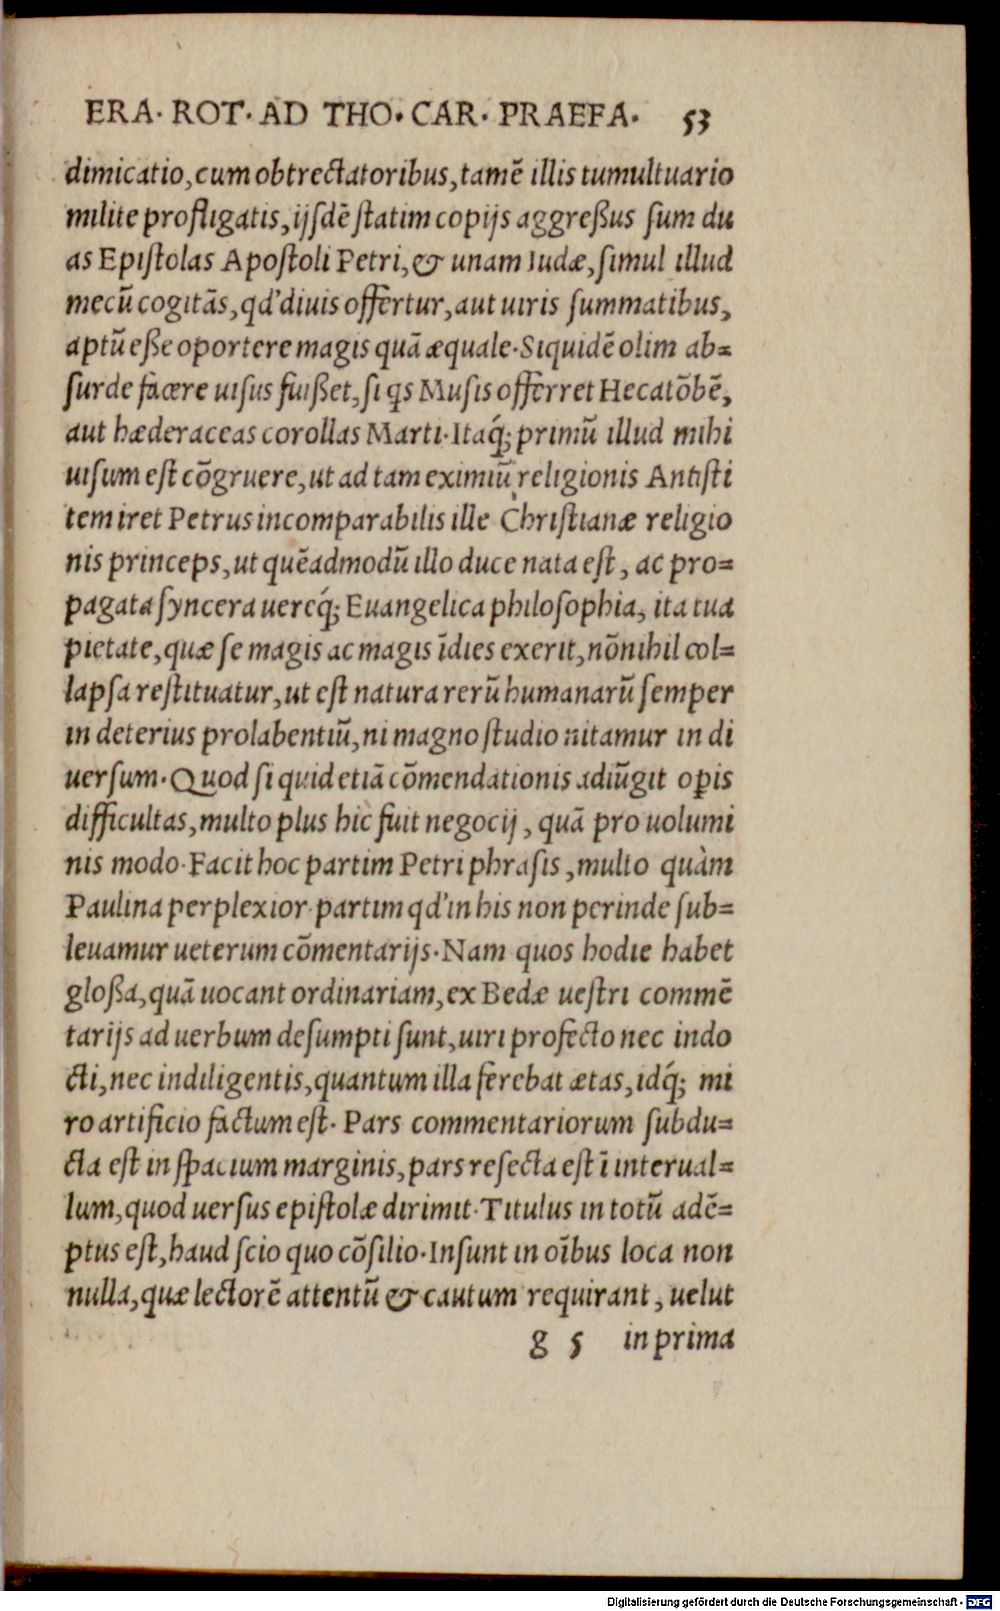 ERA· ROT· AD THO· CAR· PRAEFA· 53
dimicatio, cum obtrectatoribus, tamẽ illis tumultuario
milite profligatis, ijsdẽ statim copijs aggreßus sum du
as Epistolas Apostoli Petri, & unam Iudæ, simul illud
mecũ cogitãs, qd' diuis offertur, aut uiris summatibus,
aptũ eße oportere magis quã æquale· Siquidẽ olim ab=
surde facere uisus fuißet, si qs Musis offerret Hecatõbẽ,
aut hæderaceas corollas Marti· Itaq́; primũ illud mihi
uisum est cõgruere, ut ad tam eximiũ religionis Antisti
tem iret Petrus incomparabilis ille Christianæ religio
nis princeps, ut quẽadmodũ illo duce nata est, ac pro=
pagata syncera uereq́; Euangelica philosophia, ita tua
pietate, quæ se magis ac magis ĩdies exerit, nõnihil col=
lapsa restituatur, ut est natura rerũ humanarũ semper
in deterius prolabentiũ, ni magno studio nitamur in di
uersum· Quod si quid etiã cõmendationis adiũgit opis
difficultas, multo plus hic fuit negocij, quã pro uolumi
nis modo· Facit hoc partim Petri phrasis, multo quàm
Paulina perplexior· partim qd' in his non perinde sub=
leuamur ueterum cõmentarijs· Nam quos hodie habet
gloßa, quã uocant ordinariam, ex Bedæ uestri commẽ
tarijs ad uerbum desumpti sunt, uiri profecto nec indo
cti, nec indiligentis, quantum illa ferebat ætas, idq́; mi
ro artificio factum est· Pars commentariorum subdu=
cta est in spacium marginis, pars resecta est ĩ interual=
lum, quod uersus epistolæ dirimit· Titulus in totũ adẽ=
ptus est, haud scio quo cõsilio· Insunt in oĩbus loca non
nulla, quæ lectorẽ attentũ & cautum requirant, uelut
g 5 in prima
Digitalisierung gefördert durch die Deutsche Forschungsgemeinschaft - DFG